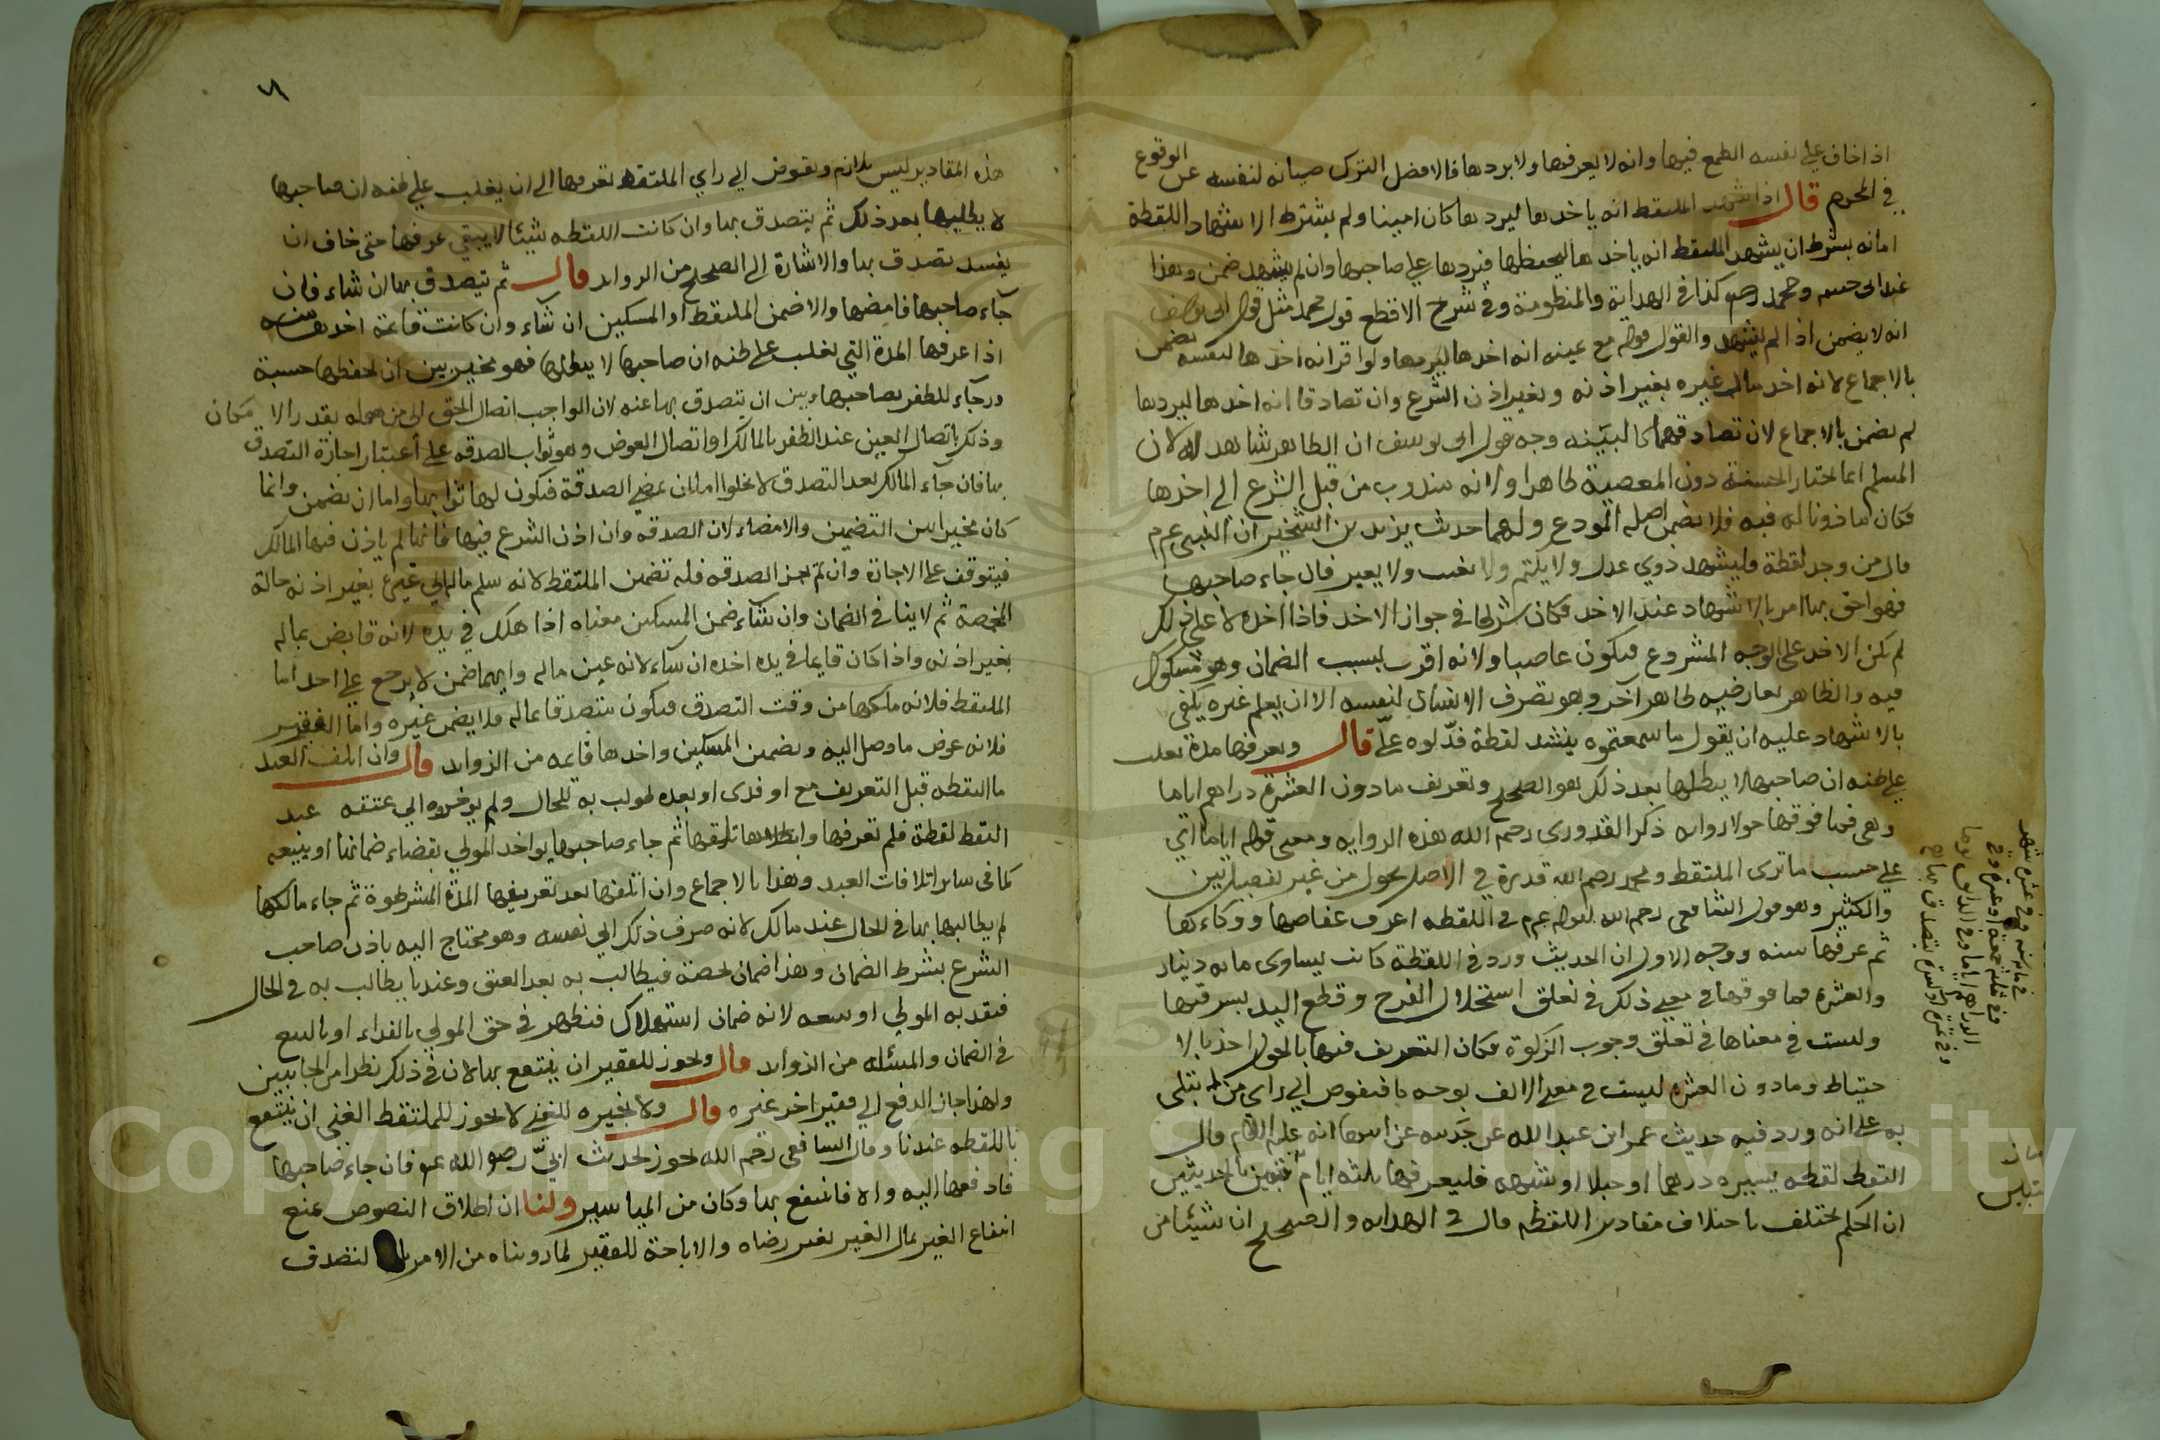 اذا خاف علي نفسه الطمع فيها وانه لا يعرفها ولا يردها فالافضل الترك صيانه لنفسه عن الوقوع
في المحرم قال اذا شهد الملتقط انه ياخدها ليردها كان امينا ولم يشترط الاشهاد اللقطة
امانه بشرط ان يشهد الملتقط انه ياخدها ليحفظها فيردها علي صاحبها وان لم يشهد ضمن وهذا
عند ابي حنيفه ومحمد رحم كذا في الهداية والمنظومة وفي شرح الاقطع قول محمد مثل قول ابي يوسف
انه لا يضمن اذا لم يشهد والقول قوله مع يمينه انه اخدها ليردها ولو اقر انه اخدها لنفسه يضمن
بالاجماع لانه اخد مال غيره بغير اذنه وبغير اذن الشرع وان تصادقا انه اخدها ليردها
لم يضمن بالاجماع لان تصادقهما كالبينه وجه قول ابي يوسف ان الظاهر شاهد له لان
المسلم انما يختار الحسنة دون المعصية ظاهرا ولانه مندوب من قبل الشرع الي اخدها
فكان ماذونا له فيه فلا يضمن اصله المودع ولهما حديث يزيد بن الشخير ان النبي عم
قال من وجد لقطة فليشهد ذوي عدل ولا يكتم ولا يغيب ولا يعير فان جاء صاحبها
فهو احق بها امر بالاشهاد عند الاخد فكان شرطا في جواز الاخد فاذا اخده لا علي ذلك
لم يكن الاخد علي الوجه المشروع فيكون غاصبا ولانه اقر بسبب الضمان وهو مشكوك
فيه والظاهر يعارضه ظاهر آخر وهو تصرف الانسان لنفسه الا ان يعلم غيره يكفي
بالاشهاد عليه ان يقول ما سمعتموه ينشد لقطة فدلوه علي قال ويعرفها مدة يغلب
علي ظنه ان صاحبها لا يطلبها بعد ذلك هو الصحيح وتعريف ما دون العشرة دراهم اياما
وهي فما فوقها حولا روايه ذكر القدوري رحمه الله هذه الروايه ومعني قوله اياما اي
علي حسب ما تري الملتقط ومحمد رحمه الله قدره في الاصل بحول من غير تفصيل بين
والكثير وهو قول الشافعي رحمه الله لقوله عم في اللقطه اعرف عفاصها ووكاءها
ثم عرفها سنه ووجه الاول ان الحديث ورد في اللقطة كانت يساوي مايه دينار
والعشرة فما فوقها في معني ذلك في تعلق استحلال الفرج وقطع اليد بسرقتها
وليست في معناها في تعلق وجوب الزكوة فكان التعريف فيها بالحول اخذ بالا
حتياط وما دون العشره ليست في معني الالف بوجه ما فيفوض الي راي من يبتلي
به علي انه ورد فيه حديث عمر ابن عبد الله عن جدته عن ابيها انه عليه السلام قال
التقط لقطه يسيره درهما او حبلا او شبهه فليعرفها ثلثه ايام فتبين بالحديثين
ان الحكم يختلف باختلاف مقادير اللقطه قال في الهدايه والصحيح ان شيئا من
هذه المقادير ليس بلازم ويفوض الي راي الملتقط تعريفها الي ان يغلب علي ظنه ان صاحبها
لا يطلبها بعد ذلك ثم يتصدق بها وان كانت اللقطه شيئا لا يبقي عرفها حتي خاف ان
يفسد تصدق بها والاشارة الي الصحيح من الزوايد قال ثم يتصدق بها ان شاء فان
جآء صاحبها فامضها والا ضمن الملتقط او المسكين ان شآء وان كانت قائمة اخدها منه
اذا عرفها المدة التي يغلب علي ظنه ان صاحبها لا يطلبها فهو مخير بين ان يحفظها حسبة
ورجآء للظفر بصاحبها وبين ان يتصدق بها عنه لان الواجب اتصال الحق الي من هو له بقدر الامكان
وذلك باتصال العين عند الظفر بالمالك او اتصال العوض وهو ثواب الصدقه علي اعتبار اجازة التصدق
بها فان جآء المالك بعد التصدق لا يخلو اما ان يمضي الصدقة فيكون لها ثوابها واما ان يضمن وانما
كان مخيرا بين التضمين والامضاء لان الصدقه وان اذن الشرع فيها فانها لم ياذن فيها المالك
فيتوقف علي الاجازة وان لم يجز الصدقه فله تضمين الملتقط لانه سلم ماله الي غيره بغير اذنه حالة
المخمصة ثم لاينا في الضمان وان شآء ضمن المسكين معناه اذا هلك في يده لانه قابض بماله
بغير اذنه واذا كان قايما في يده اخده ان شآء لانه عين ماله وايهما ضمن لا يرجع علي احد اما
الملتقط فلانه ملكها من وقت التصدق فيكون متصدقا بماله فلا يضمن غيره واما الفقير
فلانه عوض ما وصل اليه وتضمين المسكين واخدها قايمه من الزوايد قال وان اتلف العبد
ما التقطه قبل التعريف بيع او فدي او بعده طولب به للحال ولم يوخروه الي عتقه عبد
التقط لقطة فلم تعرفها واتلفها ثم جاء صاحبها يواخد المولي بقضاء ضمانها او يبيعه
كما في ساير اتلافات العبد وهذا بالاجماع وان اتلفها بعد تعريفها المدة المشروطة ثم جاء مالكها
لم يطالبها بها في الحال عند مالك لانه صرف ذلك الي نفسه وهو محتاج اليه باذن صاحب
الشرع بشرط الضمان وهذا ضمان يخصه فيطالب به بعد العتق وعندنا يطالب به في الحال
فيفديه المولي او يبيعه لانه ضمان استهلاك فيظهر في حق المولي بالفداء او بالبيع
في الضمان والمسئله من الزوايد قال ويجوز للفقير ان ينتفع بها لان في ذلك نظرا من الجانبين
ولهذا جاز الدفع الي فقير اخر غيره قال ولا يجيزه للغني لا يجوز للملتقط الغني ان ينتفع
باللقطه عندنا وقال الشافعي رحمه الله يجوز لحديث ابي رضي الله عنه فان جاء صاحبها
فادفعها اليه والا فانتفع بها وكان من المياسير ولنا ان اطلاق النصوص يمنع
انتفاع الغير بمال الغير بغير رضاه والاباحة للفقير لما روينا من الامر لتصدق